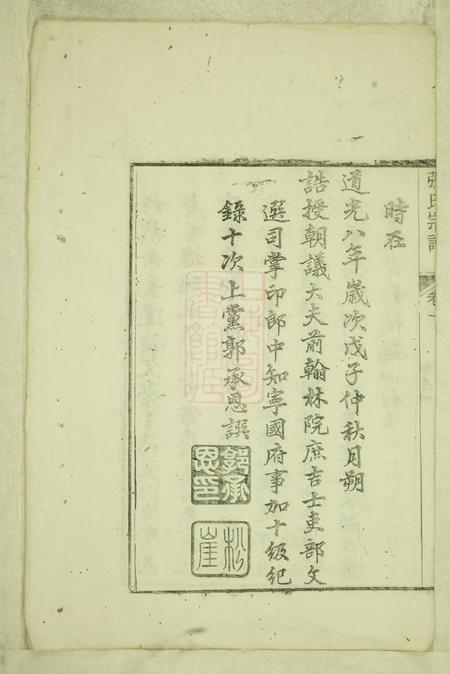 張氏宗譜 卷一
時在
道光八年歲次戊子仲秋月朔
誥授朝議大夫前翰林院庶吉士吏部文
選司掌印郎中知寧國府事加十級紀
錄十次上黨郭承恩譔
郭承
恩印
松
崖